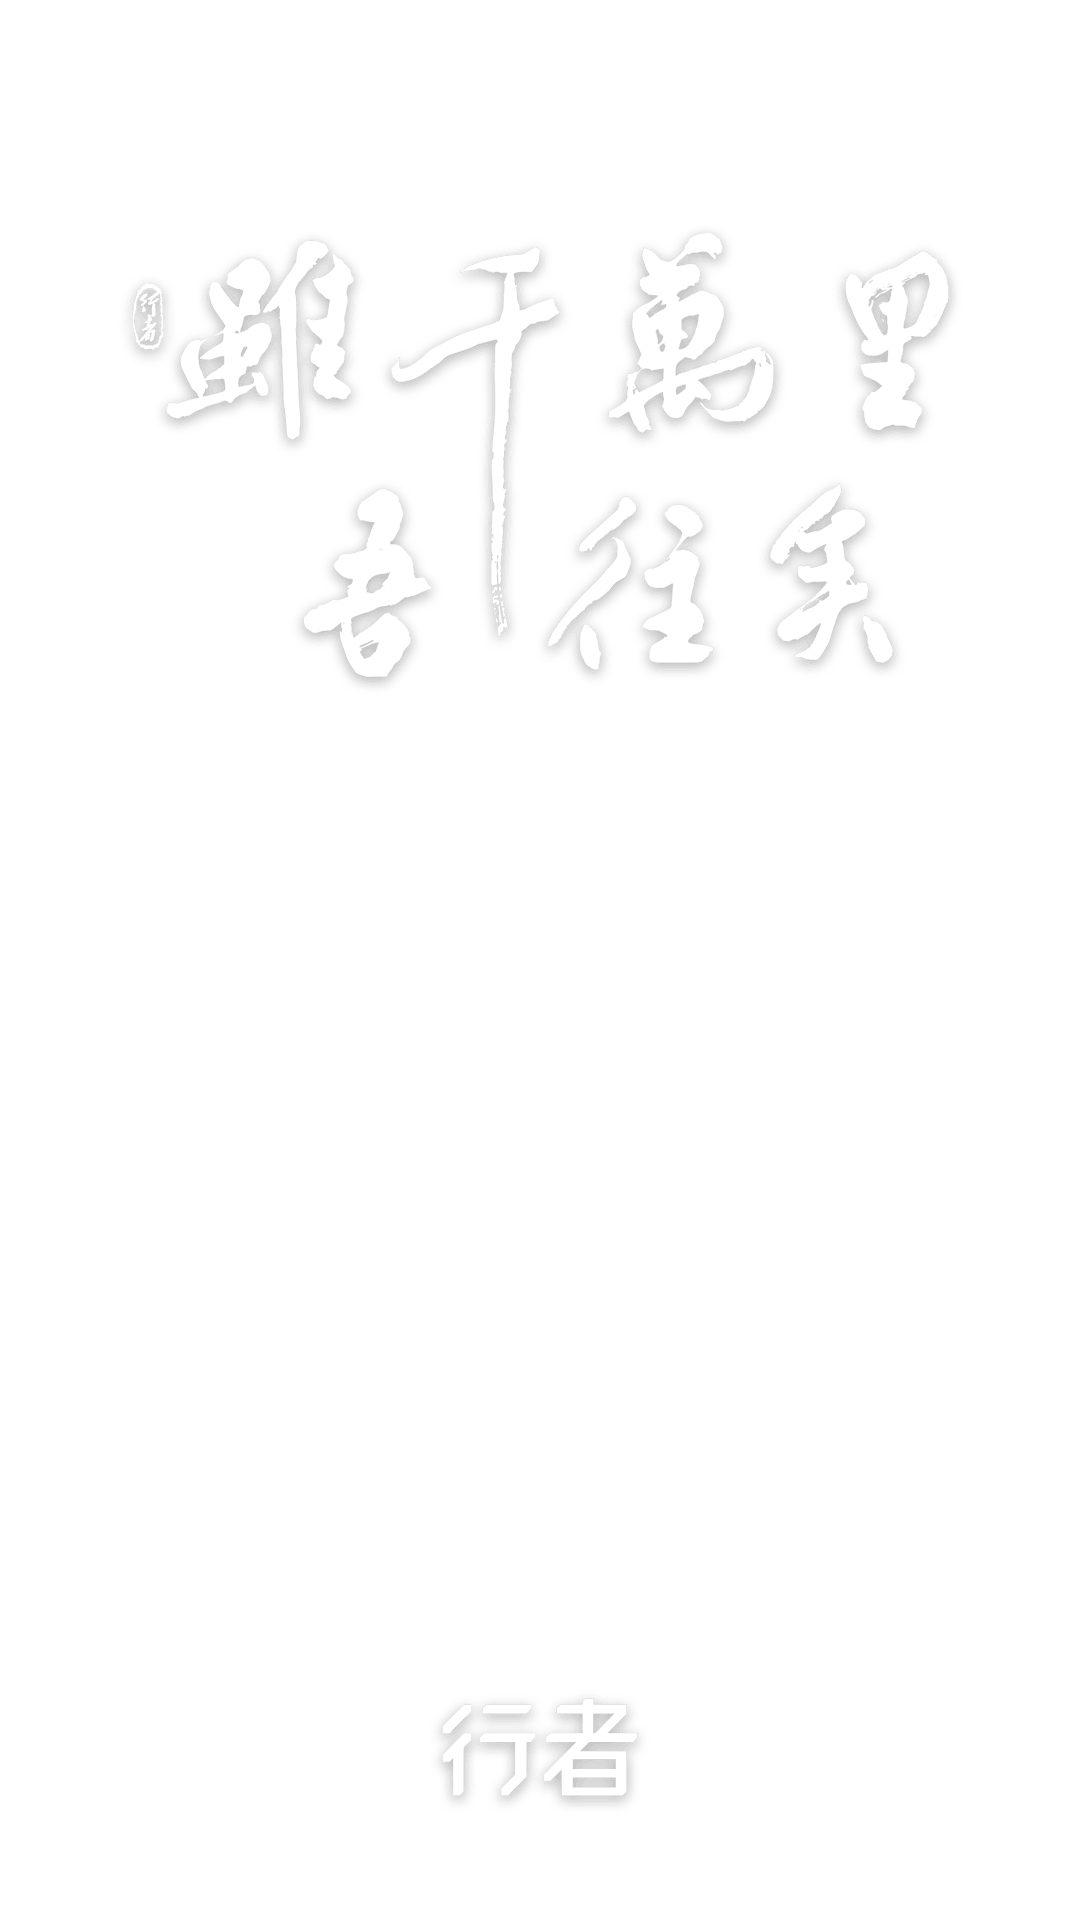 行者
雖千萬里
吾往矣
行者